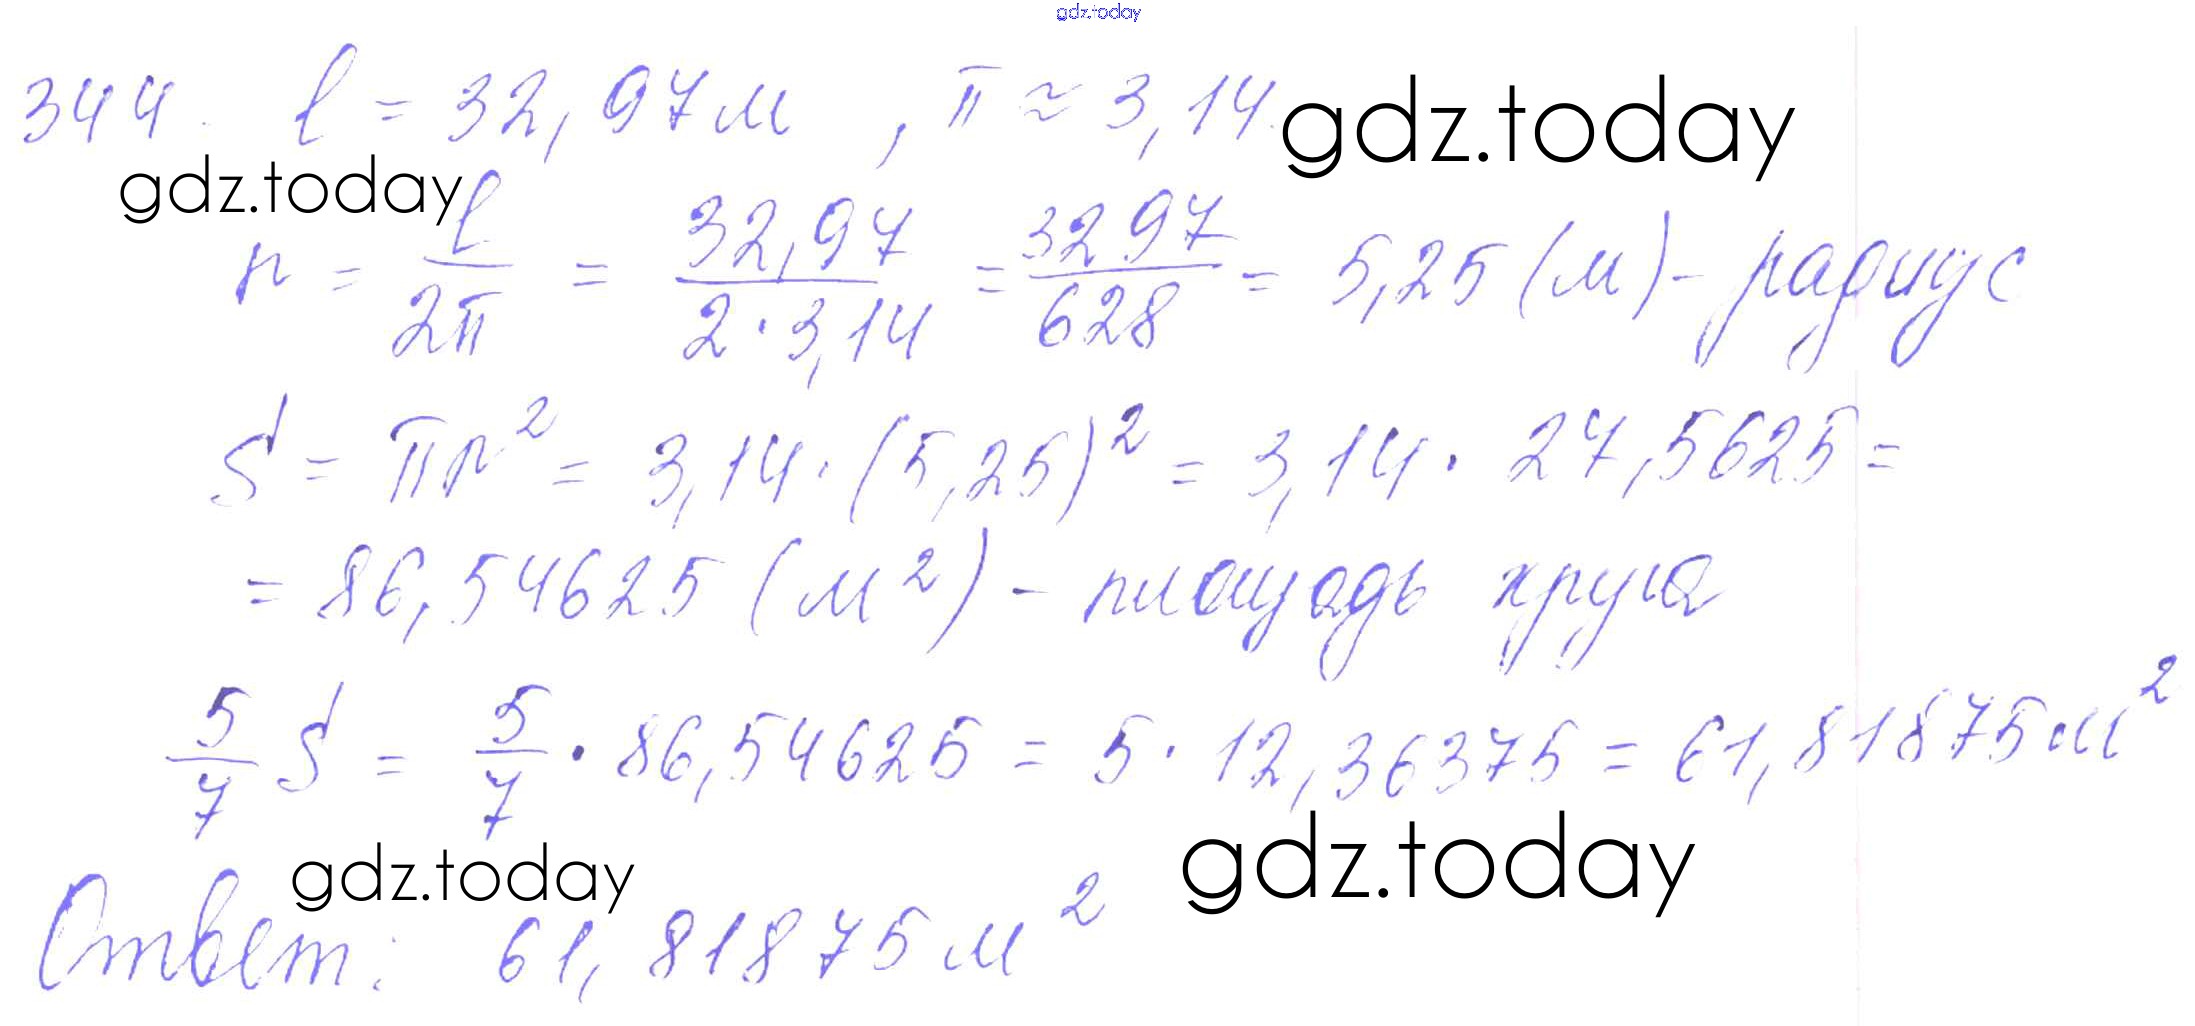 gdz.today
344. l = 32,97м, π ≈ 3,14.
gdz.today
gdz.today
r = l/2π = 32,97/2·3,14 = 3297/628 = 5,25 (м) - радиус
S = πr² = 3,14 · (5,25)² = 3,14 · 27,5625 =
= 86,54625 (м²) - площадь круга
5/7 S = 5/7 · 86,54625 = 5 · 12,36375 = 61,81875 м²
gdz.today
gdz.today
Ответ: 61,81875 м²